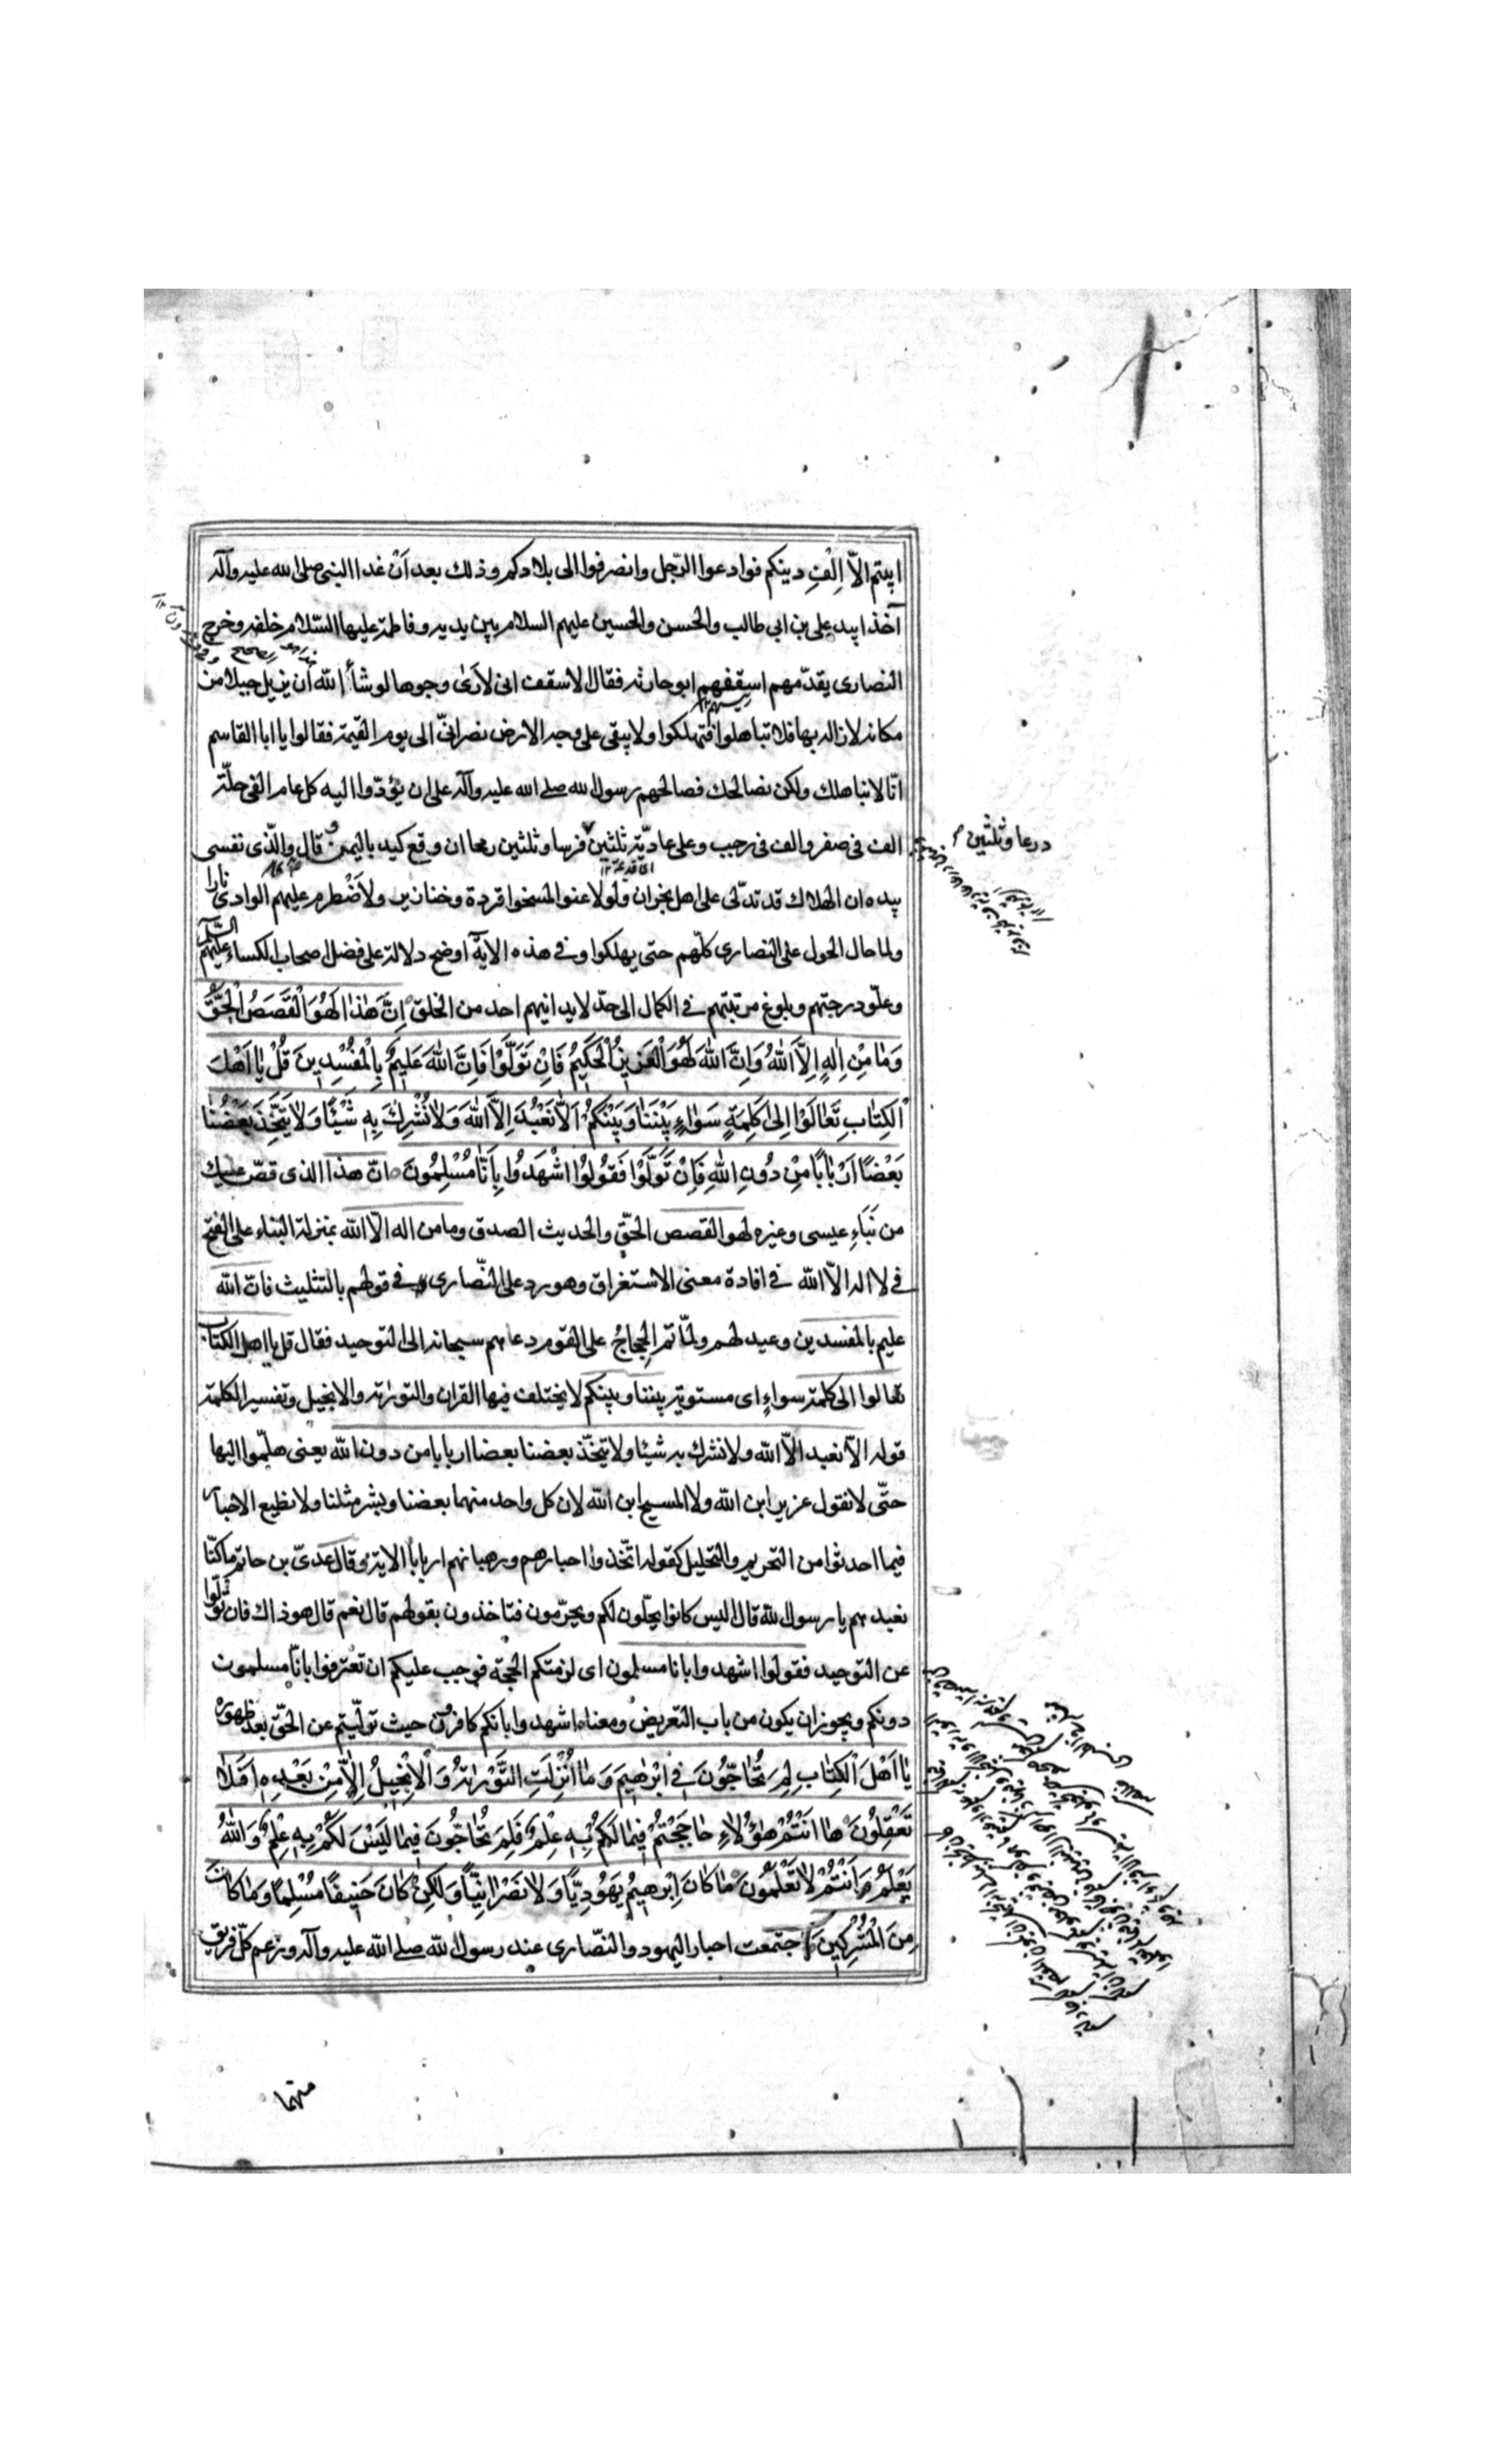 ابيتم الاّ اِلْفَ دينكم فوادعوا الرّجل وانصرفوا الى بلادكم وذلك بعد اَنْ غدا النبى صلى الله عليه وآله
آخذا بيد على بن ابى طالب والحسن والحسين عليهم السلام بين يديه وفاطمة عليها السّلام خلفه وخرج
النصارى يقدّمهم اسقفهم ابو حارثه فقال الاسقف انى لاَرَىٰ وجوها لو شأ الله ان يزيل جبلا من
مكانه لازاله بها فلا تباهلوا فتهلكوا ولا يبقى على وجه الارض نصرانىّ الى يوم القيمة فقالوا يا ابا القاسم
انّا لا نباهلك ولكن نصالحك فصالحهم رسول الله صلى الله عليه وآله على ان يؤدّوا اليه كل عام الفى حلّة
الف فى صفر والف فى رجب وعلى عاديّة ثلثين فرسا وثلثين رمحا ان وقع كيد باليمن وقال والّذى نفسى
درعا وثلثين
بيده ان الهلاك قد تدلّى على اهل نجران ولو لاعنوا لمسخوا قردة وخنازير ولاَضْطرم عليهم الوادى نارا
ولما حال الحول على النصارى كلّهم حتى يهلكوا وفى هذه الاية اوضح دلالة على فضل اصحاب الكساء عليهم السلم
وعلّو درجتهم وبلوغ مرتبتهم فى الكمال الى حدّ لا يدانيهم احد من الخلق اِنَّ هٰذٰا لَهُوَ الْقَصَصُ الْحَقُّ
وَمٰا مِنْ اِلٰهٍ اِلاَّ اللهُ وَاِنَّ اللهَ لَهُوَ الْعَزِيزُ الْحَكِيمُ فَاِنْ تَوَلَّوْا فَاِنَّ اللهَ عَلِيمٌ بِالْمُفْسِدِينَ قُلْ يٰا اَهْلَ
الْكِتٰابِ تَعٰالَوْا اِلىٰ كَلِمَةٍ سَوٰاءٍ بَيْنَنٰا وَبَيْنَكُمْ اَلاّٰ نَعْبُدَ اِلاَّ اللهَ وَلاٰ نُشْرِكَ بِهِ شَيْئًا وَلاٰ يَتَّخِذَ بَعْضُنٰا
بَعْضًا اَرْبٰابًا مِنْ دُونِ اللهِ فَاِنْ تَوَلَّوْا فَقُولُوا اشْهَدُوا بِاَنّٰا مُسْلِمُونَ انّ هذا الذى قصّ عليك
من نَبَاءِ عيسى وغيره لهو القصص الحقّ والحديث الصدق وما من اله الاّ الله بمنزلة البناء على الفتح
فى لا اله الاّ الله فى افادة معنى الاستغراق وهو رد على النّصارى فى قولهم بالتثليث فان الله
عليم بالمفسدين وعيد لهم ولمّا تم الحِجاجُ على القوم دعاهم سبحانه الى التوحيد فقال قل يا اهل الكتاب
تعالوا الى كلمة سواءٍ اى مستوية بيننا وبينكم لا يختلف فيها القران والتورٰية والانجيل وتفسير الكلمة
قوله الاّ نعبد الاّ الله ولا نشرك به شيئا ولا يتخّذ بعضنا بعضا اربابا من دون الله يعنى هلمّوا اليها
حتّى لا نقول عزير ابن الله ولا المسيح ابن الله لان كل واحد منهما بعضنا وبشر مثلنا ولا نطيع الاحبار
فيما احدثوا من التحريم والتحليل كقوله اتّخذوا احبارهم ورهبانهم اربابا الاية وقال عدىّ بن حاتم ما كنّا
نعبدهم يا رسول الله قال اليس كانوا يحلّون لكم ويحرّمون فتاخذون بقولهم قال نعم قال هو ذاك فان تولّوا
عن التوحيد فقولوا اشهدوا بانا مسلمون اى لزمتكم الحجّة فوجب عليكم ان تعترفوا بانّا مسلمون
دونكم ويجوز ان يكون من باب التعريض ومعناه اشهدوا بانكم كافرون حيث تولّيتم عن الحقّ بعد ظهوره
يٰا اَهْلَ الْكِتٰابِ لِمَ تُحٰاجُّونَ فِى اِبْرٰهِيمَ وَمٰا اُنْزِلَتِ التَّوْرٰيةُ وَالْاِنْجِيلُ اِلاّٰ مِنْ بَعْدِهِ اَفَلاٰ
تَعْقِلُونَ هٰا اَنْتُمْ هٰؤُلاٰءِ حٰاجَجْتُمْ فِيمٰا لَكُمْ بِهِ عِلْمٌ فَلِمَ تُحٰاجُّونَ فِيمٰا لَيْسَ لَكُمْ بِهِ عِلْمٌ وَاللهُ
يَعْلَمُ وَاَنْتُمْ لاٰ تَعْلَمُونَ مٰا كٰانَ اِبْرٰهِيمُ يَهُودِيًّا وَلاٰ نَصْرٰانِيًّا وَلٰكِنْ كٰانَ حَنِيفًا مُسْلِمًا وَمٰا كٰانَ
مِنَ الْمُشْرِكِينَ اجتمعت احبار اليهود والنّصارى عند رسول الله صلى الله عليه وآله وزعم كلّ فريق
منهما